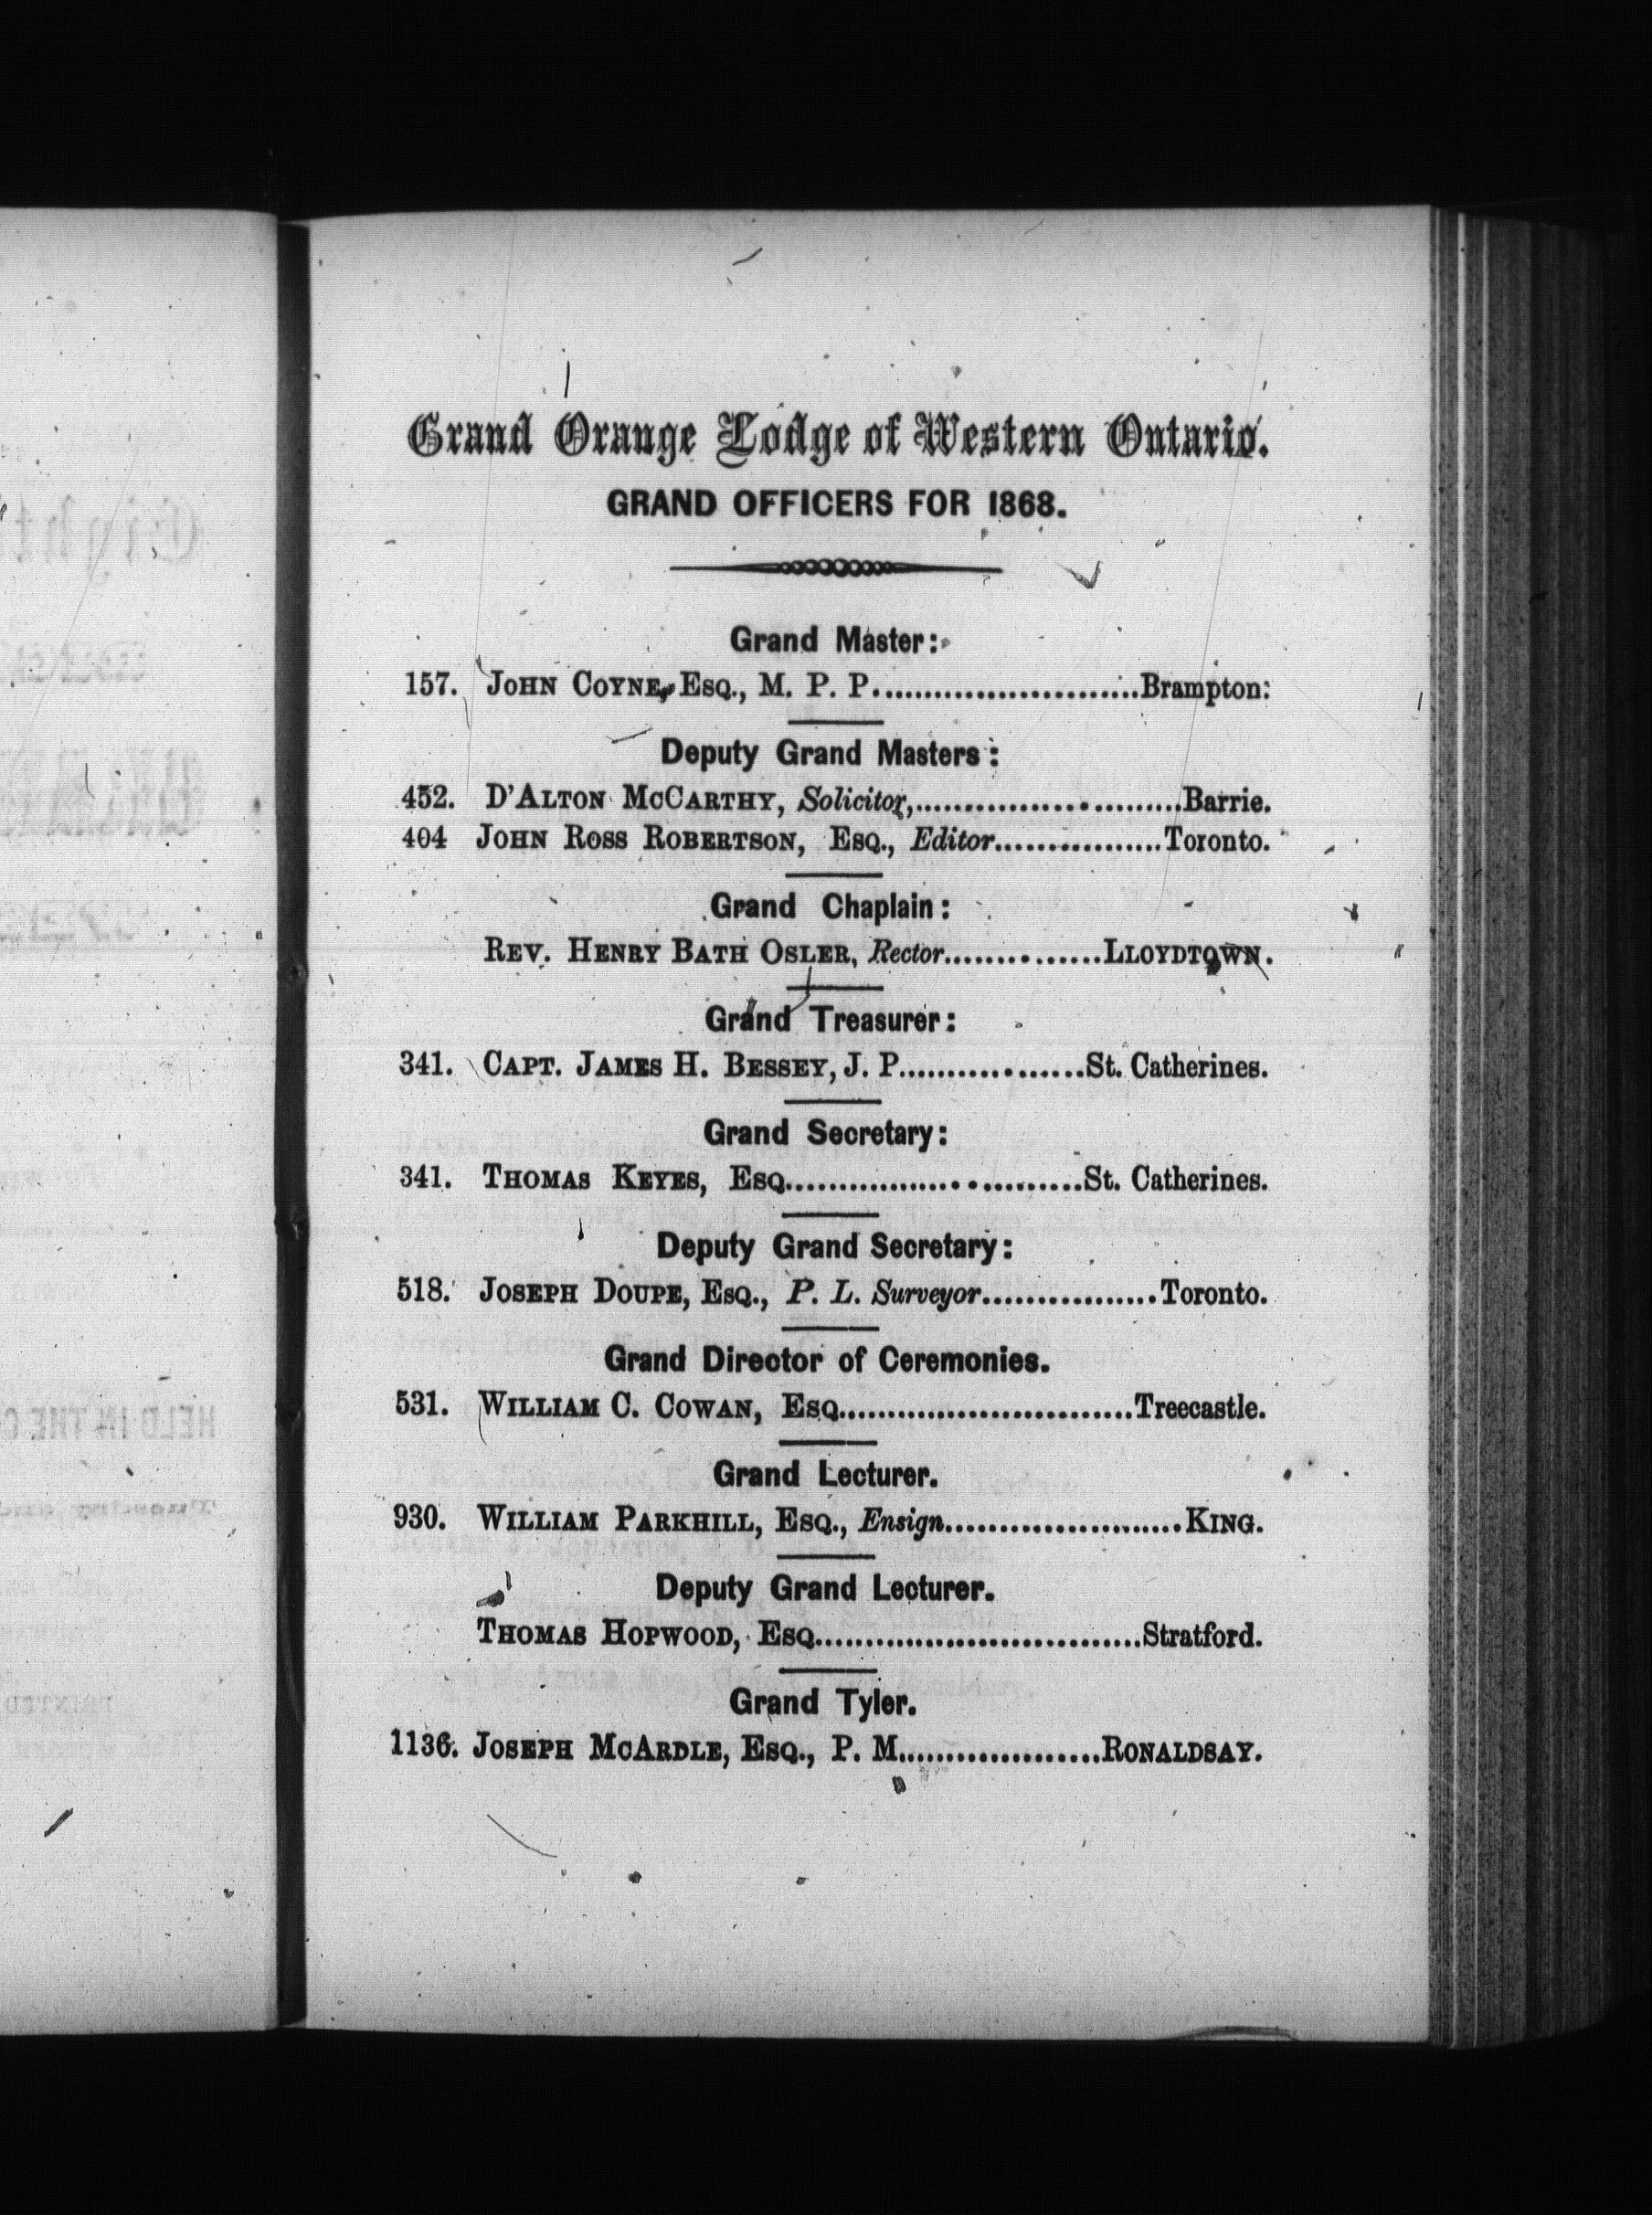 Grand Orange Lodge of Western Ontario.
GRAND OFFICERS FOR 1868.
Grand Master:
157. JOHN COYNE, ESQ., M. P. P.........................Brampton.
Deputy Grand Masters:
452. D'ALTON MCCARTHY, Solicitor,..........................Barrie.
404 JOHN ROSS ROBERTSON, ESQ., Editor................Toronto.
Grand Chaplain:
REV. HENRY BATH OSLER, Rector...............LLOYDTOWN.
Grand Treasurer:
341. CAPT. JAMES H. BESSEY, J. P..................St. Catherines.
Grand Secretary:
341. THOMAS KEYES, ESQ.............................St. Catherines.
Deputy Grand Secretary:
518. JOSEPH DOUPE, ESQ., P. L. Surveyor.................Toronto.
Grand Director of Ceremonies.
531. WILLIAM C. COWAN, ESQ.............................Treecastle.
Grand Lecturer.
930. WILLIAM PARKHILL, ESQ., Ensign.......................KING.
Deputy Grand Lecturer.
THOMAS HOPWOOD, ESQ................................Stratford.
Grand Tyler.
1136. JOSEPH MCARDLE, ESQ., P. M....................RONALDSAY.